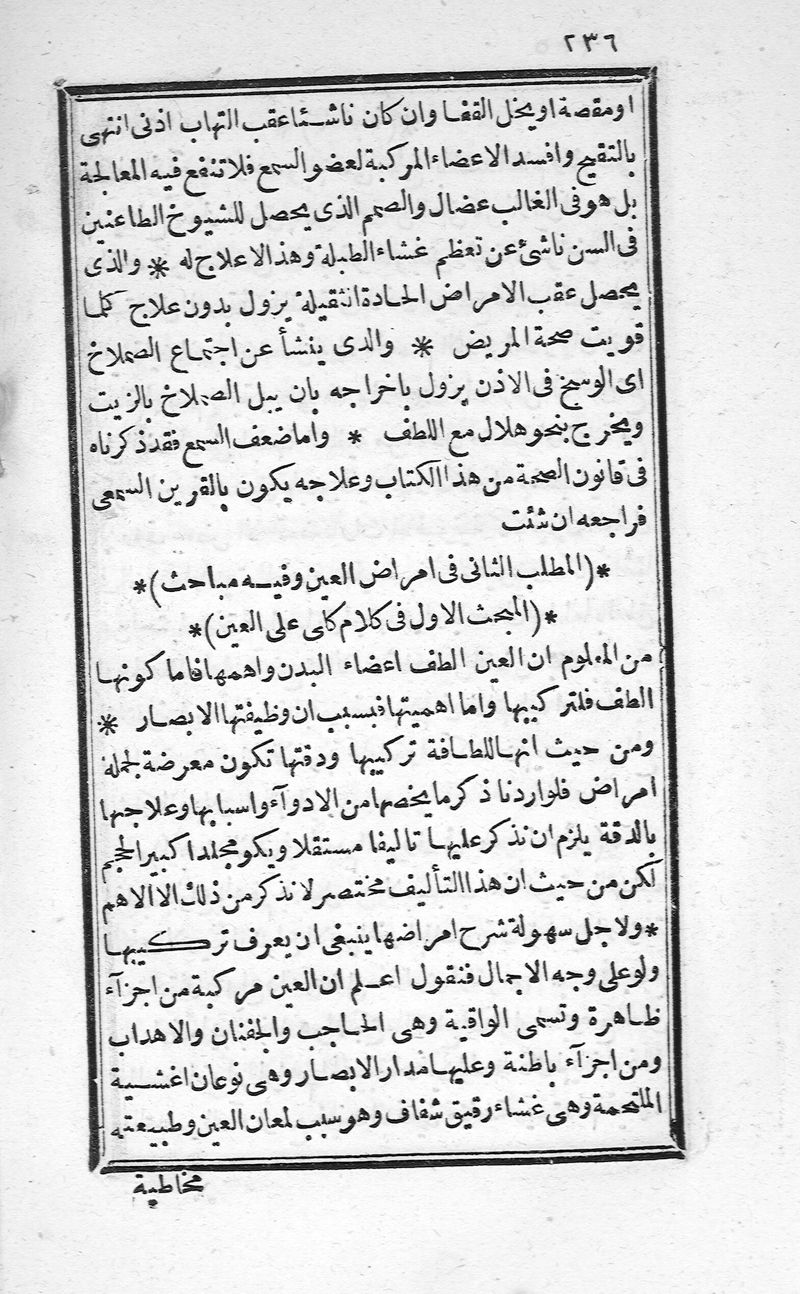 ٢٣٦
او مقصة او يخل القفا وان كان ناشئا عقب التهاب اذنى انتهى
بالتقيح وافسد الاعضاء المركبة لعضو السمع فلا تنفع فيه المعالجة
بل هو فى الغالب عضال والصمم الذى يحصل للشيوخ الطاعنين
فى السن ناشئ عن تعظم غشاء الطبلة وهذا لاعلاج له * والذى
يحصل عقب الامراض الحادة الثقيلة يزول بدون علاج كلما
قويت صحة المريض * والذى ينشأ عن اجتماع الصملاخ
اى الوسخ فى الاذن يزول باخراجه بان يبل الصملاخ بالزيت
ويخرج بنحو هلال مع اللطف * واما ضعف السمع فقد ذكرناه
فى قانون الصحة من هذا الكتاب وعلاجه يكون بالقرين السمعى
فراجعه ان شئت
*(المطلب الثانى فى امراض العين وفيه مباحث)*
*(المبحث الاول فى كلام كلى على العين)*
من المعلوم ان العين الطف اعضاء البدن واهمها فاما كونها
الطف فلتركيبها واما اهميتها فبسبب ان وظيفتها الابصار *
ومن حيث انها للطافة تركيبها ودقتها تكون معرضة لجملة
امراض فلو اردنا ذكر ما يخصها من الادوآء واسبابها وعلاجها
بالدقة يلزم ان نذكر عليها تاليفا مستقلا ويكو مجلدا كبير الحجم
لكن من حيث ان هذا التأليف مختصر لا نذكر من ذلك الا الاهم
* ولاجل سهولة شرح امراضها ينبغى ان يعرف تركيبها
ولو على وجه الاجمال فنقول اعلم ان العين مركبة من اجزآء
ظاهرة وتسمى الواقية وهى الحاجب والجفنان والاهداب
ومن اجزآء باطنة وعليها مدار الابصار وهى نوعان اغشية
الملتحمة وهى غشاء رقيق شفاف وهو سبب لمعان العين وطبيعته
مخاطية